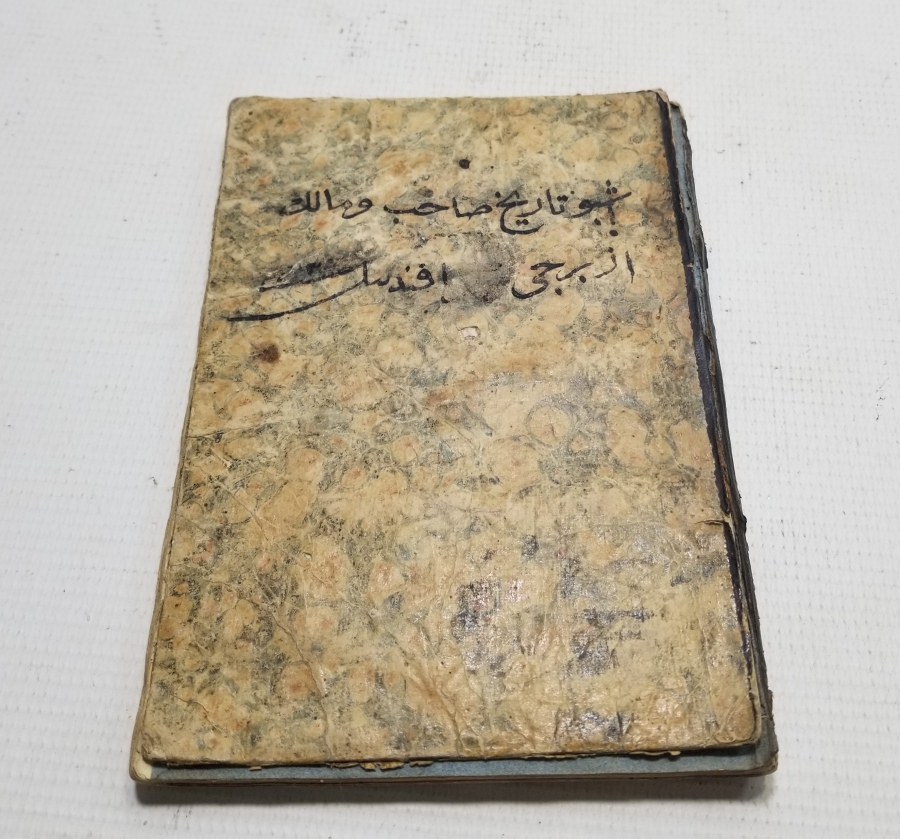 شبو تاريخ صاحب ومالك
از برجى افندينك